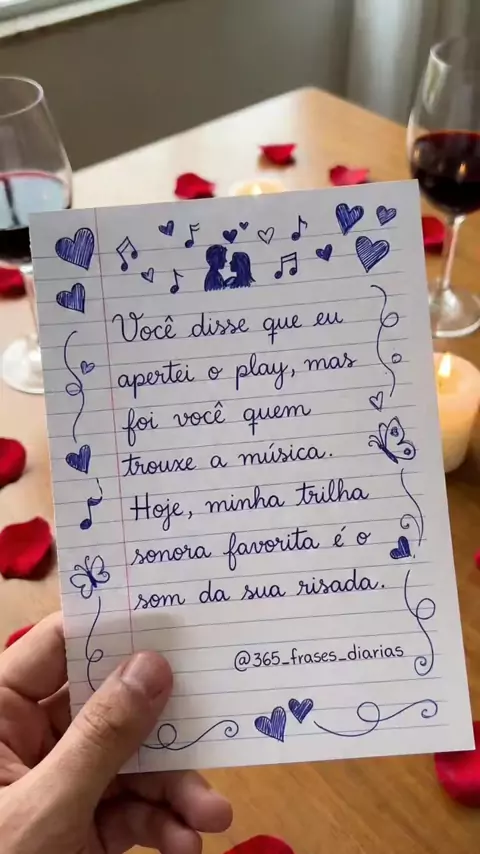 Você disse que eu
apertei o play, mas
foi você quem
trouxe a música.
Hoje, minha trilha
sonora favorita é o
som da sua risada.
@365_frases_diarias